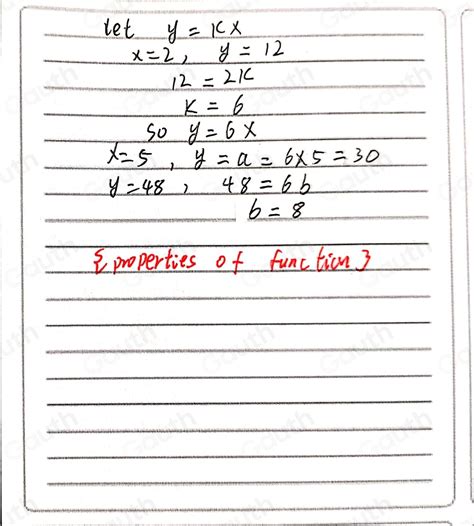 let y = kx
x=2, y = 12
12 = 2k
k = 6
so y = 6x
x=5, y = a = 6x5 = 30
y=48, 48 = 6b
b = 8
{properties of function}